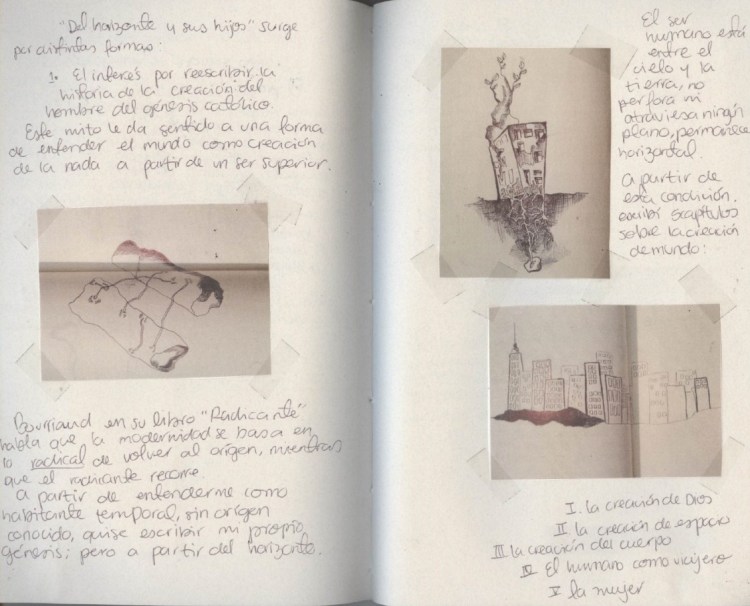 "Del horizonte y sus hijos" surge
por distintas formas:
1. El interés por reescribir la
historia de la creación del
hombre del génesis católico.
Este mito le da sentido a una forma
de entender el mundo como creación
de la nada a partir de un ser superior.
Bourriaud en su libro "Radicante"
habla que la modernidad se basa en
lo radical de volver al origen, mientras
que el radicante recorre.
a partir de entenderme como
habitante temporal, sin origen
conocido, quise escribir mi propio
génesis; pero a partir del horizonte.
El ser
humano está
entre el
cielo y la
tierra, no
perfora ni
atraviesa ningún
plano, permanece
horizontal.
a partir de
esta condición.
escribí 5 capítulos
sobre la creación
de mundo:
I. la creación de Dios
II. la creación de espacio
III la creación del cuerpo
IV El humano como viajero
V la mujer